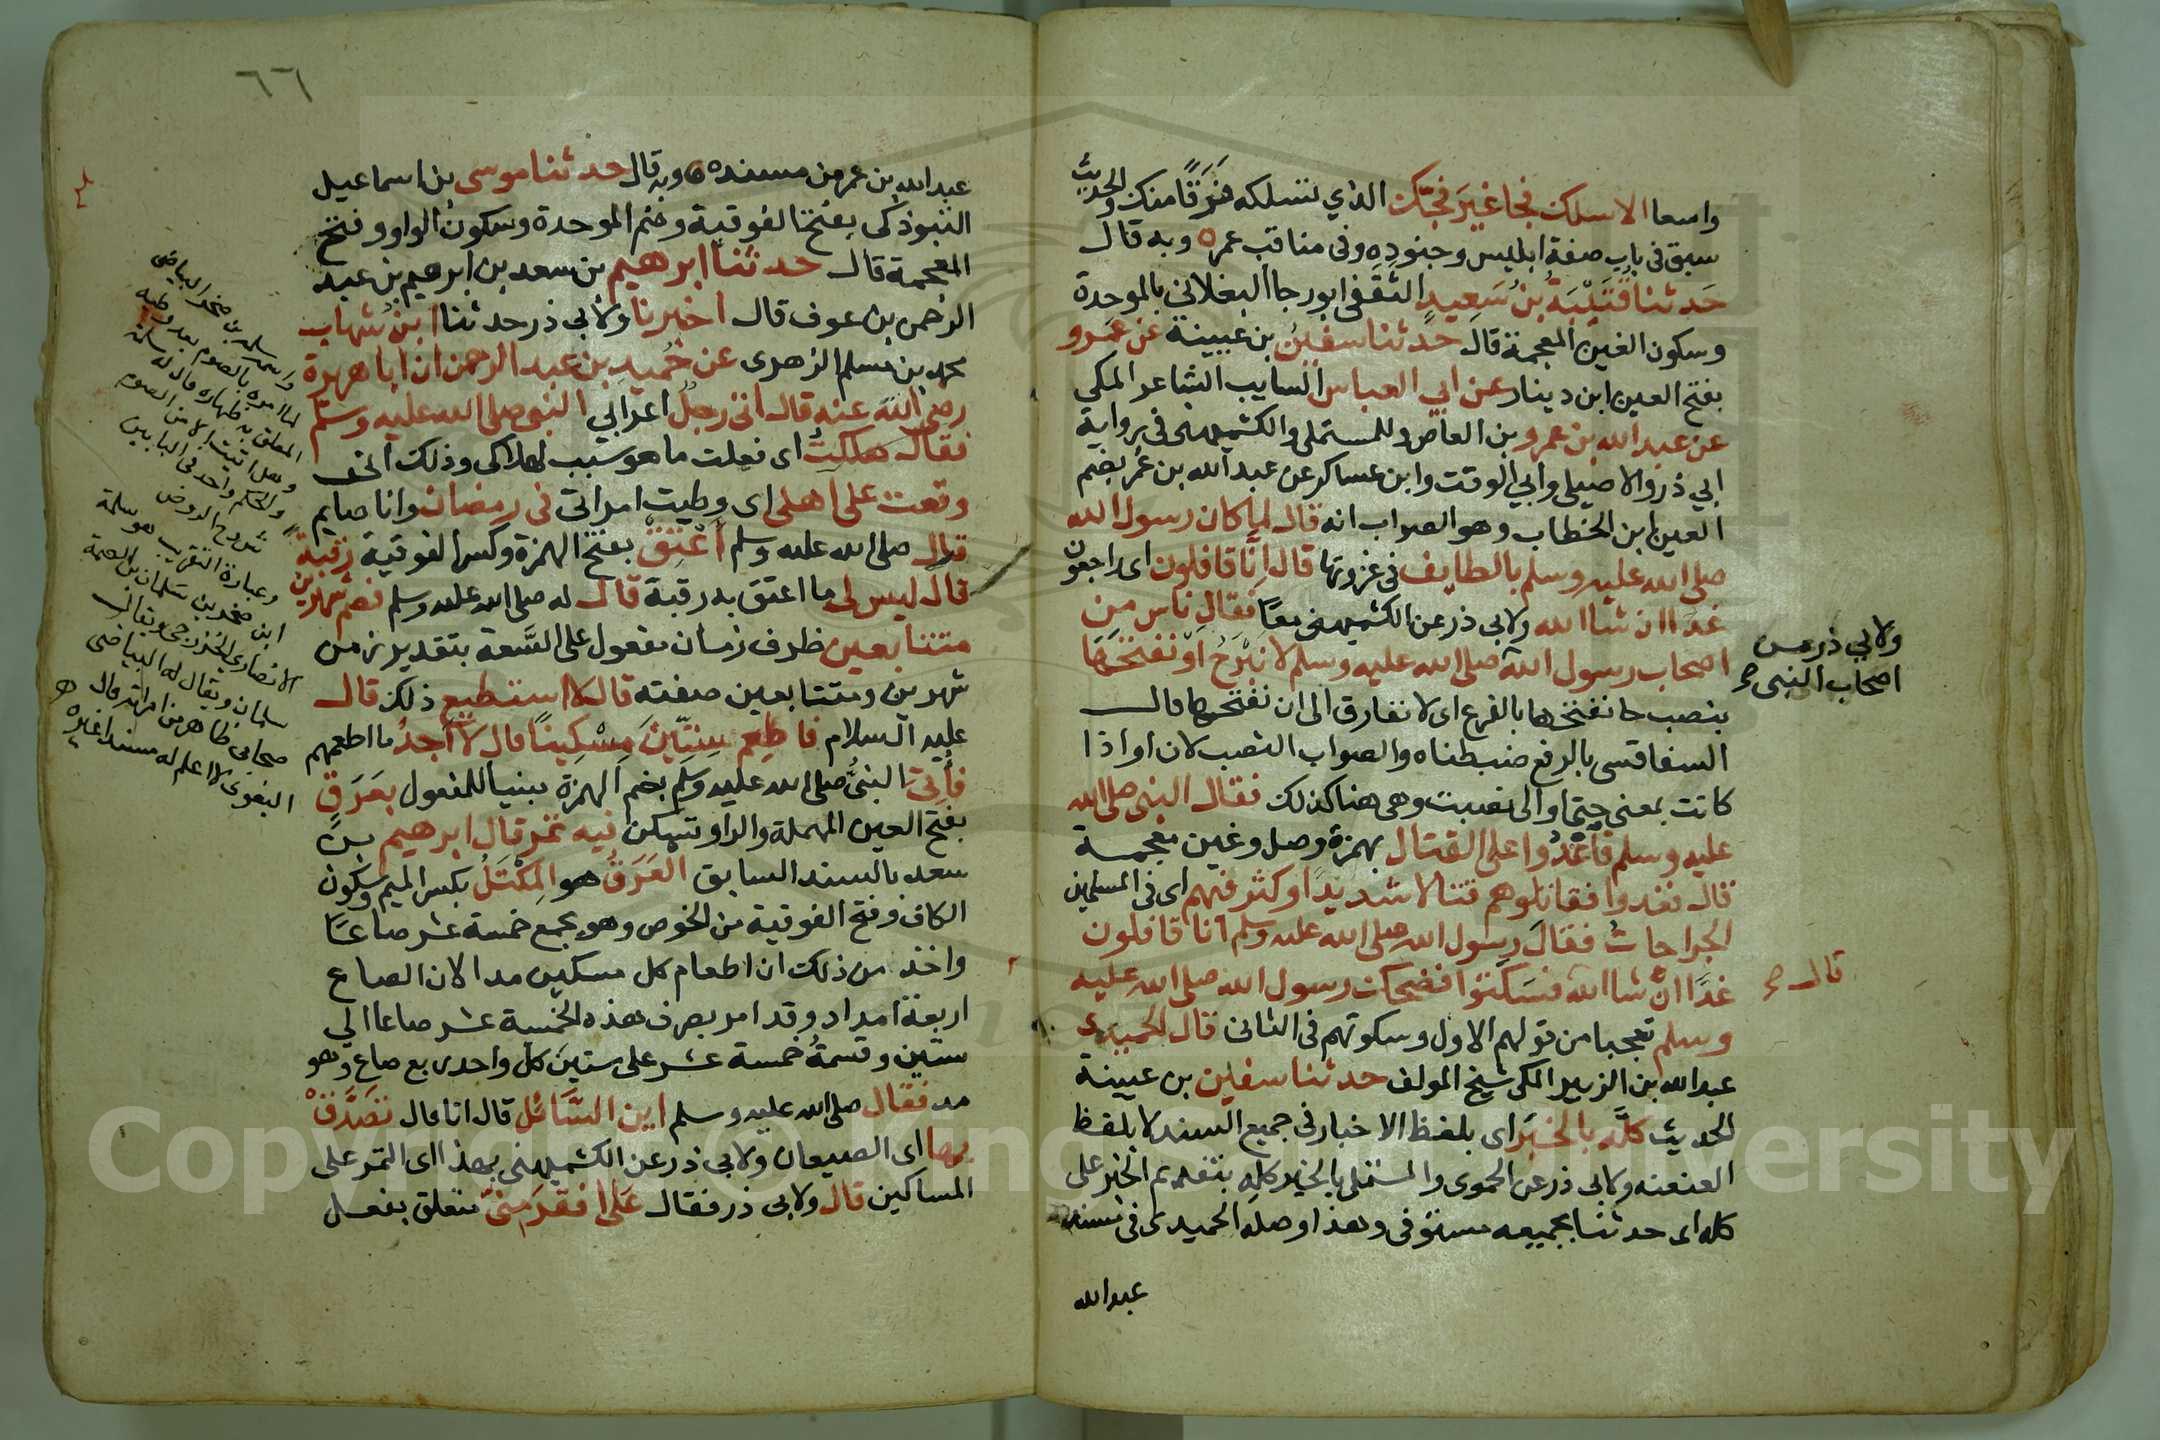 واسعا الا سلك فجا غير فجك الذي تسلكه فرقا منك والحديث
سبق في باب صفة ابليس وجنوده وفي مناقب عمر ه وبه قال
حدثنا قتيبة بن سعيد الثقفي ابو رجا البغلاني بالموحدة
وسكون الغين المعجمة قال حدثنا سفين بن عيينة عن عمرو
بفتح العين ابن دينار عن ابي العباس السايب الشاعر المكي
عن عبد الله بن عمرو بن العاص وللمستملي والكشميهني في رواية
ابي ذر والاصيلي وابي الوقت وابن عساكر عن عبد الله بن عمر بضم
العين ابن الخطاب وهو الصواب انه قال لما كان رسول الله
صلى الله عليه وسلم بالطايف في غزوتها قال انا قافلون اى راجعون
غدا ان شا الله ولابي ذر عن الكشميهني معا فقال ناس من
اصحاب رسول الله صلى الله عليه وسلم لا نبرح او نفتحها
ولابي ذر عن
اصحاب النبي
بنصب حا نفتحها بالفرع اى لا نفارق الى ان نفتحها قال
السفاقسى بالرفع ضبطناه والصواب النصب لان او اذا
كانت بمعنى حتى او الى نصبت وهى هنا كذلك فقال النبى صلى الله
عليه وسلم فاغدوا على القتال بهمزة وصل وغين معجمة
قال فغدوا فقاتلوهم قتالا شديدا وكثر فيهم اى فى المسلمين
الجراحات فقال رسول الله صلى الله عليه وسلم انا قافلون
غدا ان شا الله فسكتوا فضحك رسول الله صلى الله عليه
قال
وسلم تعجبا من قولهم الاول وسكوتهم فى الثانى قال الحميدى
عبد الله بن الزبير المكى شيخ المولف حدثنا سفين بن عيينة
الحديث كله بالخبر اى بلفظ الاخبار فى جميع السند لا بلفظ
العنعنه ولابى ذر عن الحموى والمستملى بالخبر كله بتقديم الخبر على
كله اى حدثنا بجميعه مستوفى وهذا وصله الحميدى فى مسند
عبد الله
٦٦
عبد الله بن عمر من مسنده ه وبه قال حدثنا موسى بن اسماعيل
التبوذكى بفتح الفوقية وضم الموحدة وسكون الواو وفتح
المعجمة قال حدثنا ابرهيم بن سعد بن ابرهيم بن عبد
الرحمن بن عوف قال اخبرنا ولابي ذر حدثنا ابن شهاب
محمد بن مسلم الزهرى عن حميد بن عبد الرحمن ان ابا هريرة
رضى الله عنه قال اتى رجل اعرابي النبى صلى الله عليه وسلم
فقال هلكت اى فعلت ما هو سبب لهلاكى وذلك انى
وقعت على اهلى اى وطيت امراتى فى رمضان وانا صايم
قال صلى الله عليه وسلم اعتق بفتح الهمزة وكسر الفوقية رقبة
قال ليس لى ما اعتق به رقبة قال له صلى الله عليه وسلم فصم شهرين
متتابعين ظرف زمان مفعول على السعة بتقدير زمن
شهرين ومتتابعين صفته قال لا استطيع ذلك قال
عليه السلام فاطعم ستين مسكينا قال لا اجد ما اطعمهم
فاتى النبى صلى الله عليه وسلم بضم الهمزة مبنيا للمفعول بعرق
بفتح العين المهملة والراو تسكن فيه تمر قال ابرهيم بن
سعد بالسند السابق العرق هو المكتل بكسر الميم وسكون
الكاف وفتح الفوقية من الخوص وهو يجمع خمسة عشر صاعا
واخذ من ذلك ان اطعام كل مسكين مد الان الصاع
اربعة امداد وقد امر بصرف هذه الخمسة عشر صاعا الى
ستين وقسمة خمسة عشر على ستين كل واحد ربع صاع وهو
مد فقال صلى الله عليه وسلم اين السائل قال انا قال تصدق
بها اى الصيعان ولابي ذر عن الكشميهنى بهذا اى التمر على
المساكين قال ولابي ذر فقال على افقر منى متعلق بفعل
واسمه سلمة بن صخر البياضى
شروح الروض
وعبارة التقريب هو سلمة
ابن صخر بن سلمان بن الصمة
الانصارى الخزرجى ويقال
سلمان ويقال له البياضى
صحابى ظاهر من امراته قال
البغوى لا اعلم له مسندا غيره